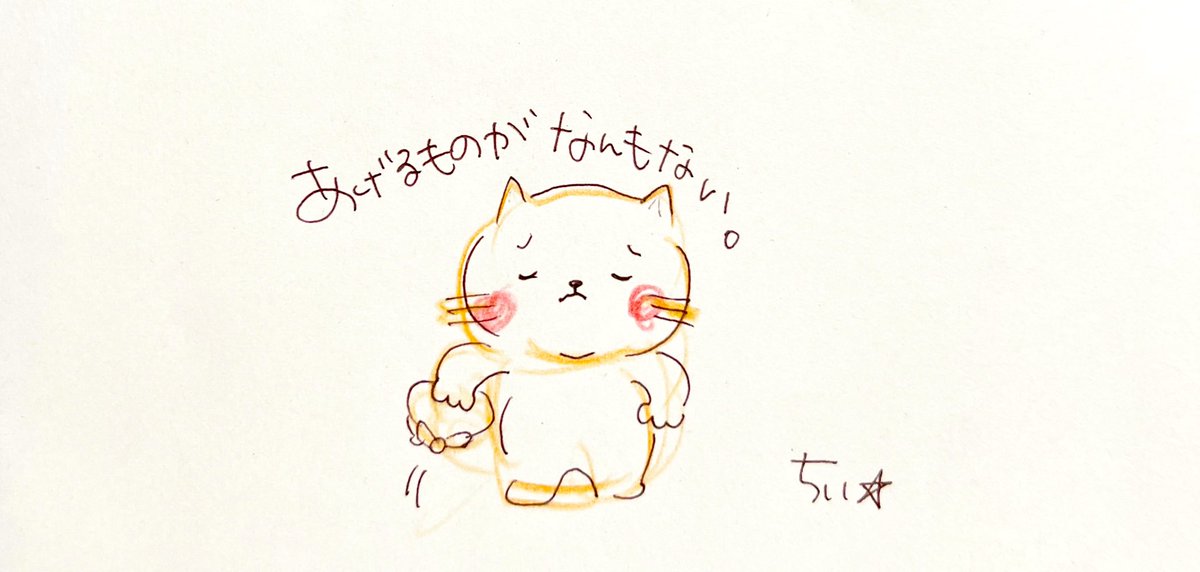 あげるものがなんもない。
ちぃ☆